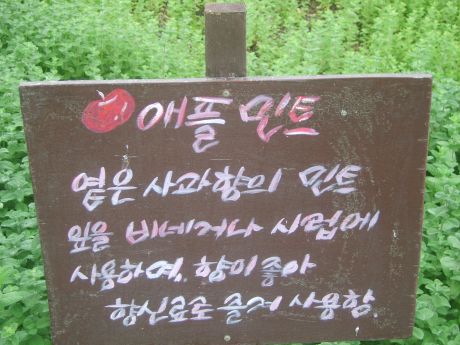 애플 민트
옅은 사과향의 민트
잎을 비네거나 시럽에
사용하며, 향이 좋아
향신료로 즐겨 사용함.